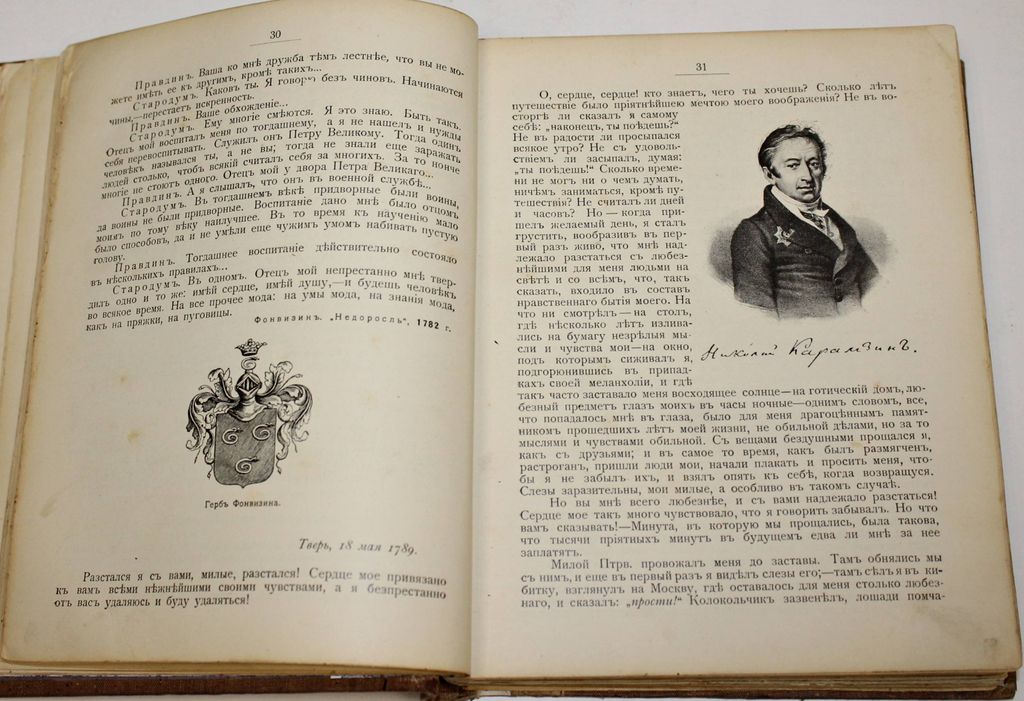 30
Правдинъ. Ваша ко мнѣ дружба тѣмъ лестнѣе, что вы не мо-
жете имѣть ее къ другимъ, кромѣ такихъ...
Стародумъ. Каковъ ты. Я говорю безъ чиновъ. Начинаются
чины,—перестаетъ искренность.
Правдинъ. Ваше обхожденіе...
Стародумъ. Ему многіе смѣются. Я это знаю. Быть такъ.
Отецъ мой воспиталъ меня по тогдашнему, а я не нашелъ и нужды
себя перевоспитывать. Служилъ онъ Петру Великому. Тогда одинъ
человѣкъ назывался ты, а не вы; тогда не знали еще заражать
людей столько, чтобъ всякій считалъ себя за многихъ. За то нонче
многіе не стоютъ одного. Отецъ мой у двора Петра Великаго...
Правдинъ. А я слышалъ, что онъ въ военной службѣ...
Стародумъ. Въ тогдашнемъ вѣкѣ придворные были воины,
да воины не были придворные. Воспитаніе дано мнѣ было отцомъ
моимъ по тому вѣку наилучшее. Въ то время къ наученію мало
было способовъ, да и не умѣли еще чужимъ умомъ набивать пустую
голову.
Правдинъ. Тогдашнее воспитаніе дѣйствительно состояло
въ нѣсколькихъ правилахъ...
Стародумъ. Въ одномъ. Отецъ мой непрестанно мнѣ твер-
дилъ одно и то же: имѣй сердце, имѣй душу,—и будешь человѣкъ
во всякое время. На все прочее мода: на умы мода, на знанія мода,
какъ на пряжки, на пуговицы.
Фонвизинъ. „Недоросль“, 1782 г.
Гербъ Фонвизина.
Тверь, 18 мая 1789.
Разстался я съ вами, милые, разстался! Сердце мое привязано
къ вамъ всѣми нѣжнѣйшими своими чувствами, а я безпрестанно
отъ васъ удаляюсь и буду удаляться!
31
О, сердце, сердце! кто знаетъ, чего ты хочешь? Сколько лѣтъ
путешествіе было пріятнѣйшею мечтою моего воображенія? Не въ во-
сторгѣ ли сказалъ я самому
себѣ: „наконецъ, ты поѣдешь?“
Не въ радости ли просыпался
всякое утро? Не съ удоволь-
ствіемъ ли засыпалъ, думая:
„ты поѣдешь!“ Сколько времени
не могъ ни о чемъ думать,
ничѣмъ заниматься, кромѣ пу-
тешествія? Не считалъ ли дней
и часовъ? Но — когда при-
шелъ желаемый день, я сталъ
грустить, вообразивъ въ пер-
вый разъ живо, что мнѣ над-
лежало разстаться съ любез-
нѣйшими для меня людьми на
свѣтѣ и со всѣмъ, что, такъ
сказать, входило въ составъ
нравственнаго бытія моего. На
что ни смотрѣлъ — на столъ,
гдѣ нѣсколько лѣтъ излива-
лись на бумагу незрѣлыя мы-
сли и чувства мои—на окно,
подъ которымъ сиживалъ я,
подгорюнившись въ припад-
кахъ своей меланхоліи, и гдѣ
Николай Карамзинъ.
такъ часто заставало меня восходящее солнце—на готическій домъ, лю-
безный предметъ глазъ моихъ въ часы ночные—однимъ словомъ, все,
что попадалось мнѣ въ глаза, было для меня драгоцѣннымъ памят-
никомъ прошедшихъ лѣтъ моей жизни, не обильной дѣлами, но за то
мыслями и чувствами обильной. Съ вещами бездушными прощался я,
какъ съ друзьями; и въ самое то время, какъ былъ размягченъ,
растроганъ, пришли люди мои, начали плакать и просить меня, что-
бы я не забылъ ихъ, и взялъ опять къ себѣ, когда возвращуся.
Слезы заразительны, мои милые, а особливо въ такомъ случаѣ.
Но вы мнѣ всего любезнѣе, и съ вами надлежало разстаться!
Сердце мое такъ много чувствовало, что я говорить забывалъ. Но что
вамъ сказывать!—Минута, въ которую мы прощались, была такова,
что тысячи пріятныхъ минутъ въ будущемъ едва ли мнѣ за нее
заплатятъ.
Милой Птрв. провожалъ меня до заставы. Тамъ обнялись мы
съ нимъ, и еще въ первый разъ я видѣлъ слезы его;—тамъ сѣлъ я въ ки-
битку, взглянулъ на Москву, гдѣ оставалось для меня столько любез-
наго, и сказалъ: „прости!“ Колокольчикъ зазвенѣлъ, лошади помча-